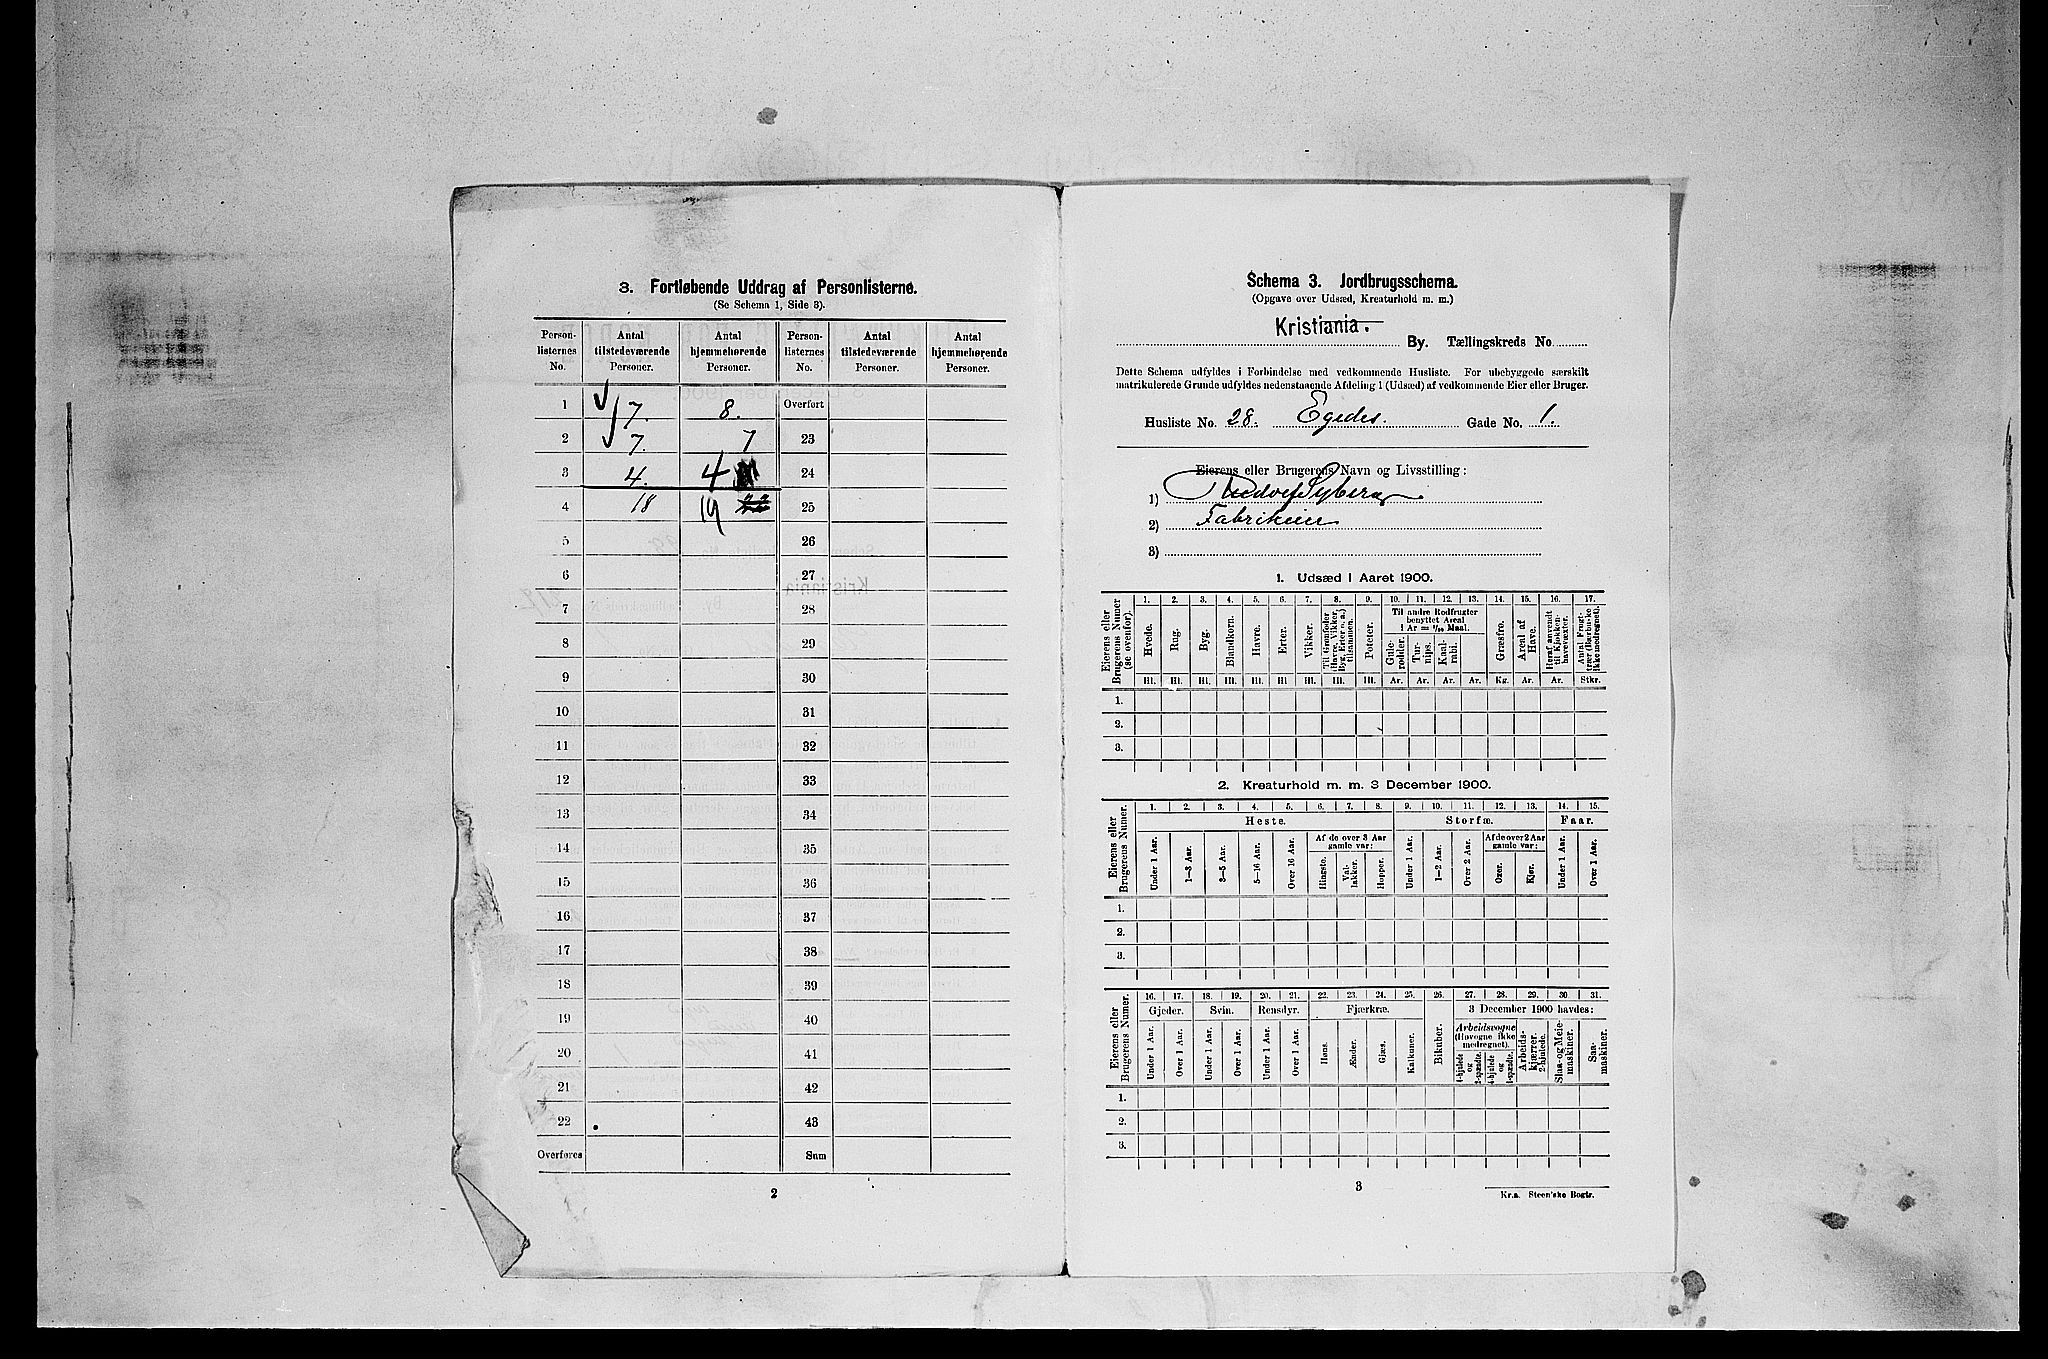 3. Fortløbende Uddrag af Personlisterne.
(Se Schema 1, Side 3).
Person-listernes No. Antal tilstedeværende Personer. Antal hjemmehørende Personer. Person-listernes No. Antal tilstedeværende Personer. Antal hjemmehørende Personer.
1 7. 8. Overført
2 7. 7 23
3 4. 4 24
4 18 19 25
5 26
6 27
7 28
8 29
9 30
10 31
11 32
12 33
13 34
14 35
15 36
16 37
17 38
18 39
19 40
20 41
21 42
22 43
Overføres Sum
2
Schema 3. Jordbrugsschema.
(Opgave over Udsæd, Kreaturhold m. m.)
Kristiania.
By. Tællingskreds No.
Dette Schema udfyldes i Forbindelse med vedkommende Husliste. For ubebyggede særskilt
matrikulerede Grunde udfyldes nedenstaaende Afdeling 1 (Udsæd) af vedkommende Eier eller Bruger.
Husliste No. 28. Egedes. Gade No. 1.
Eierens eller Brugerens Navn og Livsstilling:
1) Rudolf Syberg
2) Fabrikeier
3)
1. Udsæd i Aaret 1900.
Eierens eller Brugerens Numer (se ovenfor).
1. 2. 3. 4. 5. 6. 7. 8. 9. 10. 11. 12. 13. 14. 15. 16. 17.
Til andre Rodfrugter benyttet Areal 1 Ar = 1/10 Maal.
Hvede. Rug. Byg. Blandkorn. Havre. Erter. Vikker. Til Grønfoder (Havre, Vikker, Byg, Erter o. a.) tilsammen. Poteter. Gule-rødder. Tur-nips. Kaal-rabi. Græsfrø. Areal af Have. Heraf anvendt til Kjøkken-havevæxter. Antal Frugt-trær (Bærbuske ikke medregnet).
Hl. Hl. Hl. Hl. Hl. Hl. Hl. Hl. Hl. Ar. Ar. Ar. Ar. Kg. Ar. Ar. Stkr.
1.
2.
3.
2. Kreaturhold m. m. 3 December 1900.
Eierens eller Brugerens Numer.
1. 2. 3. 4. 5. 6. 7. 8. 9. 10. 11. 12. 13. 14. 15.
Heste. Storfæ. Faar.
Af de over 3 Aar gamle var: Af de over 2 Aar gamle var:
Under 1 Aar. 1—3 Aar. 3—5 Aar. 5—16 Aar. Over 16 Aar. Hingste. Val-lakker. Hopper. Under 1 Aar. 1—2 Aar. Over 2 Aar. Oxer. Kjør. Under 1 Aar. Over 1 Aar.
1.
2.
3.
Eierens eller Brugerens Numer.
16. 17. 18. 19. 20. 21. 22. 23. 24. 25. 26. 27. 28. 29. 30. 31.
Gjeder. Svin. Rensdyr. Fjærkræ. 3 December 1900 havdes:
Arbeidsvogne (Høvogne ikke medregnet).
Under 1 Aar. Over 1 Aar. Under 1 Aar. Over 1 Aar. Under 1 Aar. Over 1 Aar. Høns. Ænder. Gjæs. Kalkuner. Bikuber. 4-hjulede og 2-spændte. 4-hjulede og 1-spændte. Arbeids-kjærrer, 2-hjulede. Slaa- og Meie-maskiner. Saa-maskiner.
1.
2.
3.
3
Kr.a. Steen'ske Bogtr.